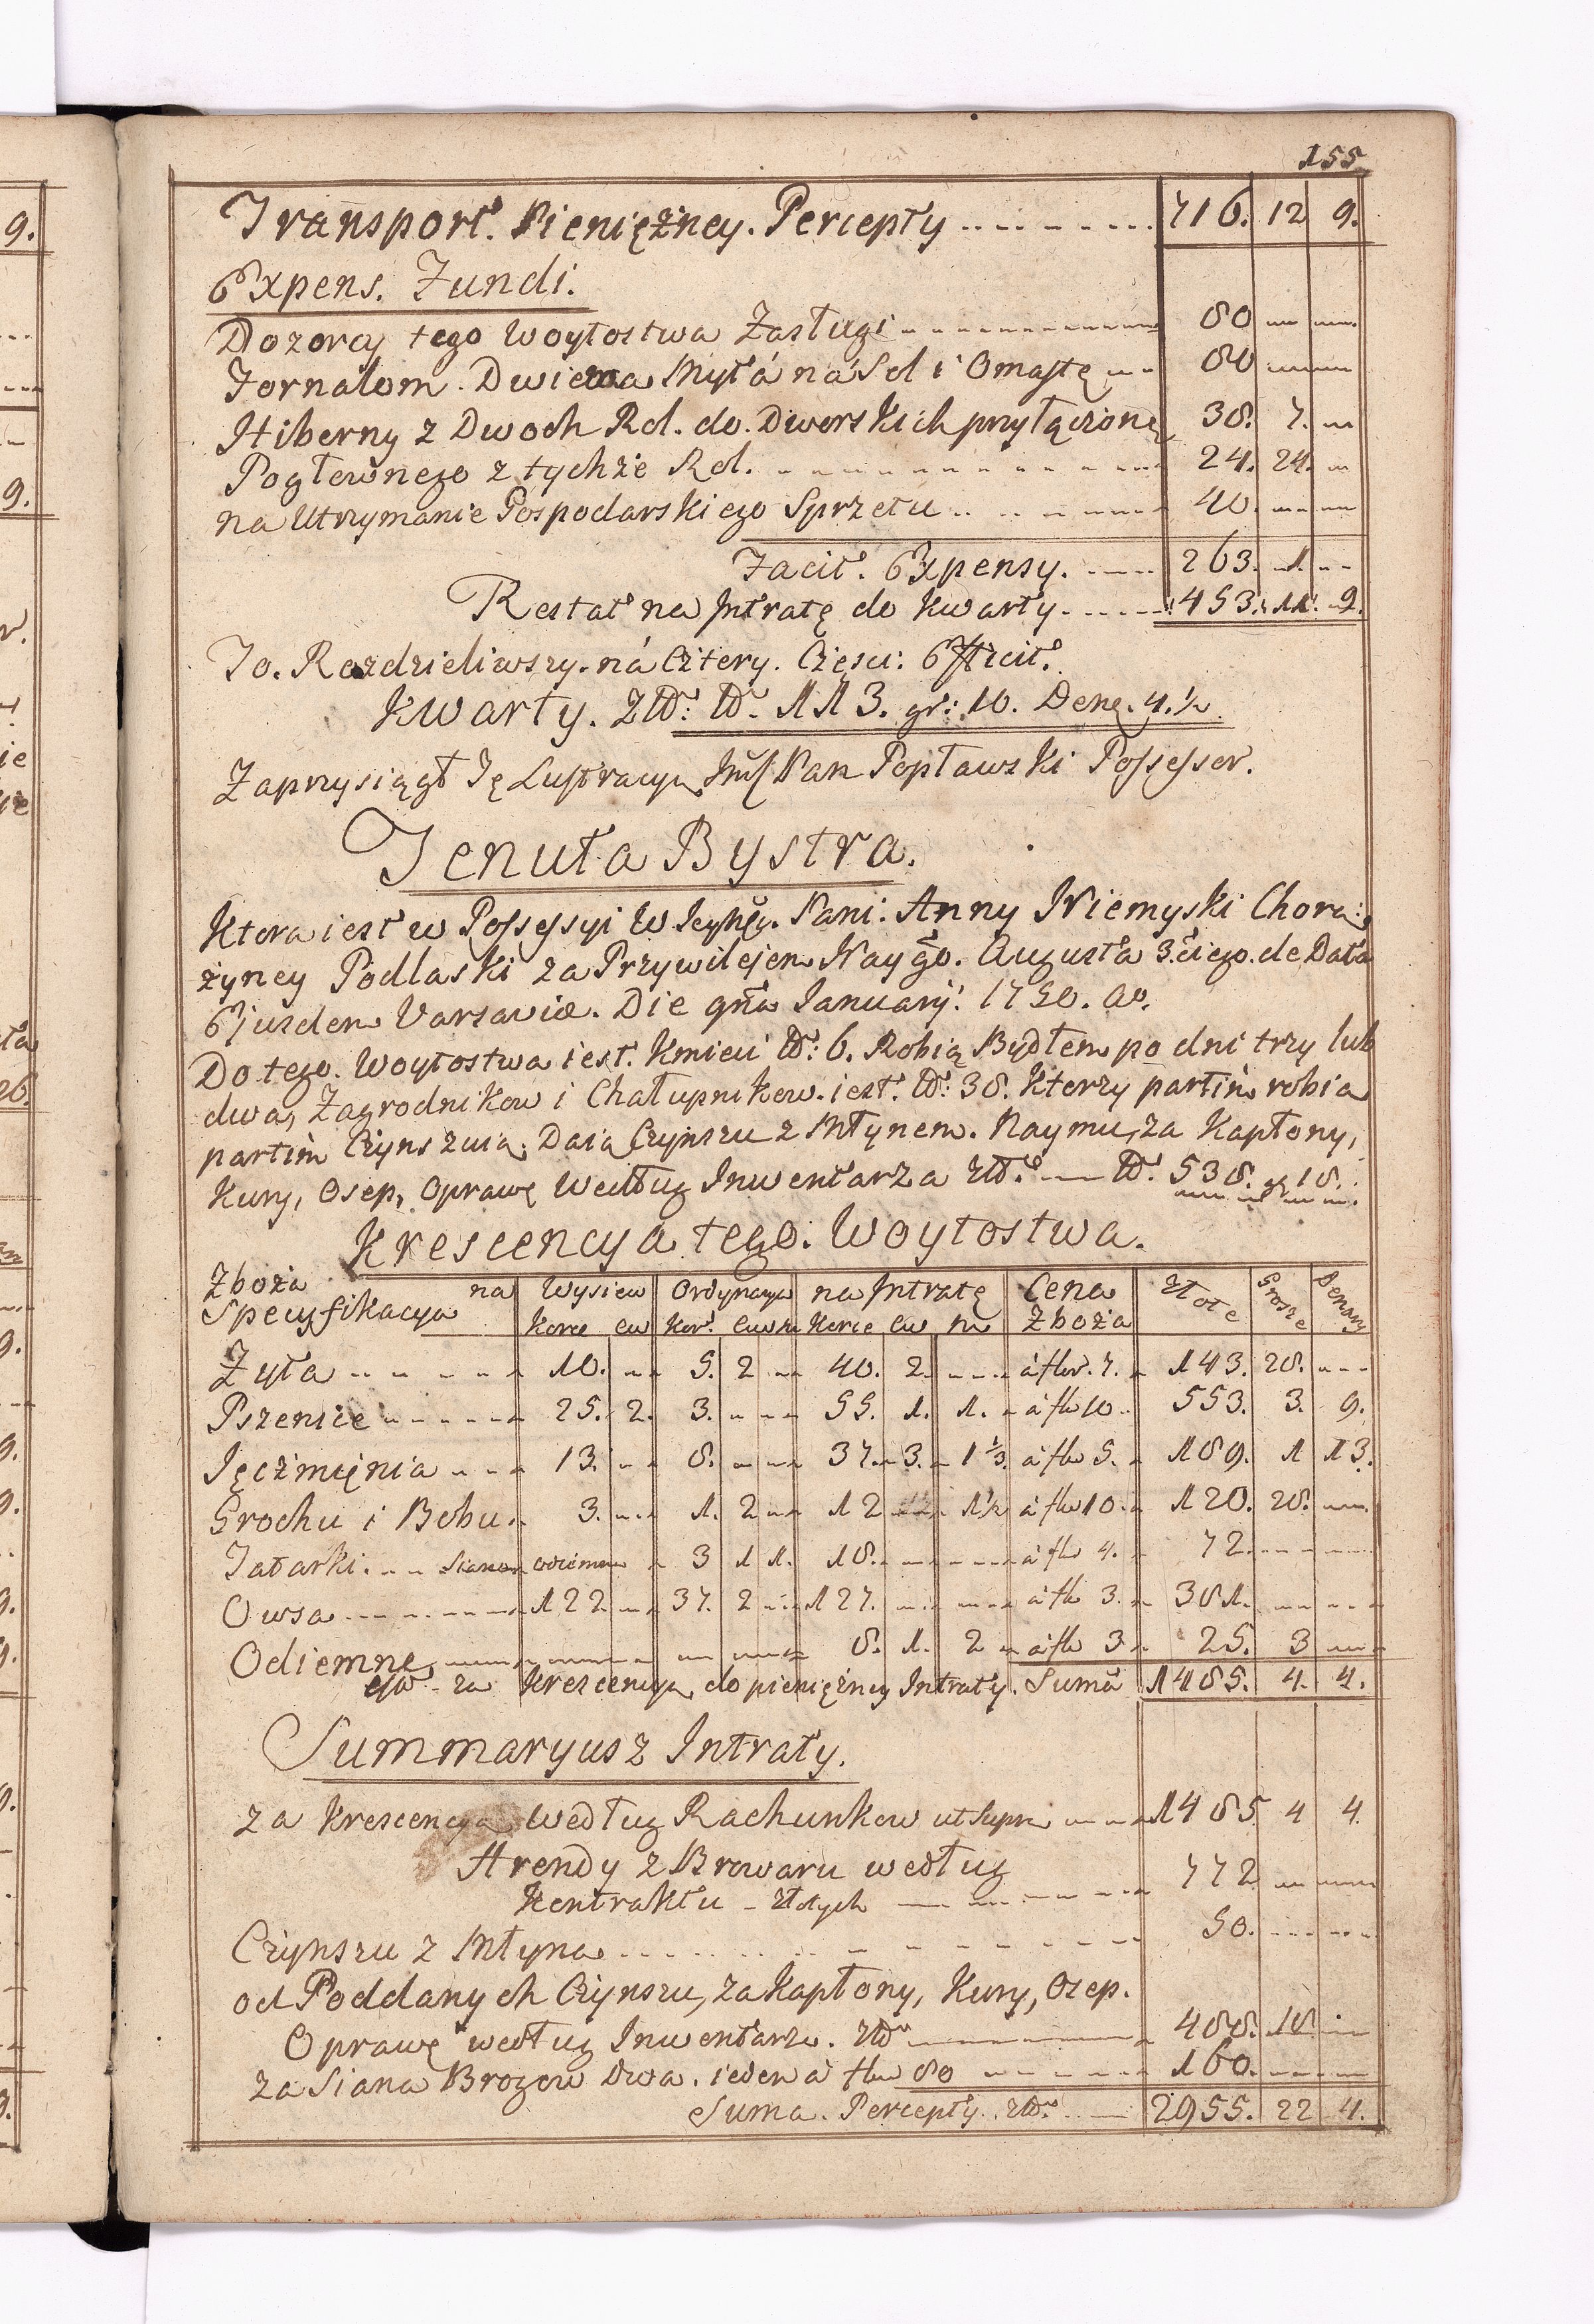 155.
Transport. Pieniężney. Percepty 716. 12 9.
Expens. Fundi.
Dozorcy tego Woytostwa Zasługi 80
Fornalom. Dwiema Myta na Sol i Omastę 80
Hiberny z Dwoch Rol. do. Dworskich przyłączoney 38. 7.
Pogłownego z tychże Rol. 24. 24.
na Utrzymanie Gospodarskiego Sprzetu 40.
Facit. Expensy. 263. 1.
Restat na Intratę do Kwarty 453. 11. 9.
To. Rozdzieliwszy. ná Cztery. Części: Efficit.
Kwarty. Złł: №. 113. gr: 10. Dene. 4.½
Zaprzysiągł Tę Lustracyą Pan Popławski Possessor.
Tenuta Bystra.
Ktora iest w Possessyi W Pani: Anny Niemyski Chorą:
żyney Podlaski za Przywilejem Naygo. Augusta 3.ciego. de Data
Ejusdem Varsaviæ. Die Januarij. 1750. Ao.
Do tego. Woytostwa iest. Kmieci №: 6. Robią Bydłem po dni trzy lub
dwa, Zagrodnikow i Chałupnikow. iest. №: 38. Ktorzy partim robia
partim Czynszuią. Daią Czynszu z Młynem. Naymu, za Kapłony,
Kury, Osep, Oprawę Według Inwentarza Złł. 538. gr 18.
Krescencya tego. Woytostwa.
Zboża Specyfikacya na Wysiew Ordynarya na Intratę Cena Zboża Złote Grosze Denary
Korce Cw Kor. Cw Korce Cw
Żyta 10. 5. 2 40. 2. à flor. 7. 143. 28.
Pszenice 25. 2. 3. 55. 1. 1. à flo 10 553. 3. 9.
Jęczmięnia 13. 8. 37. 3. 1⅓ à flo 5. 189. 1 13.
Grochu i Bobu 3. 1. 2 12 1½ à flo 10. 120. 28.
Tatarki. 3 1 1. 18. à flo 4. 72.
Owsa 122 37. 2 127. à flo 3. 381.
Odiemne 8. 1. 2 à flo 3 25. 3
za Krescencyą do pieniężney Intraty. Suma 1485. 4. 4.
Summaryusz Intraty.
za Krescencyą Według Rachunkow ut supra 1485 4 4.
Arendy z Browaru według
Kontraktu Złotych 772
Czynszu z Młyna 50.
od Poddanych Czynszu, za Kapłony, Kury, Osep.
Oprawę według Inwentarza. Złł 488. 18
za Siana Brogow Dwa. ieden à flo 80 160.
Suma. Percepty. Złł. 2955. 22 4.